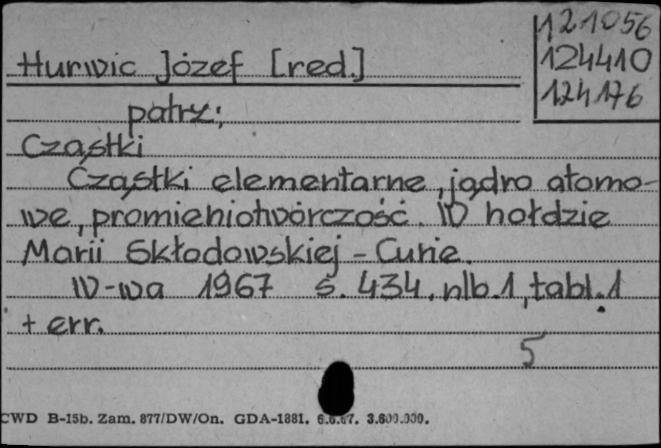 121056
Hurwic Józef [red.]
124410
124176
patrz:
Cząstki
Cząstki elementarne, jądro atomo-
we, promieniotwórczość. W hołdzie
Marii Skłodowskiej - Curie.
W-wa 1967 s. 434, nlb.1, tabl.1
+ err.
5
CWD B-15b. Zam. 877/DW/On. GDA-1881. 6.6.67. 3.600.000.